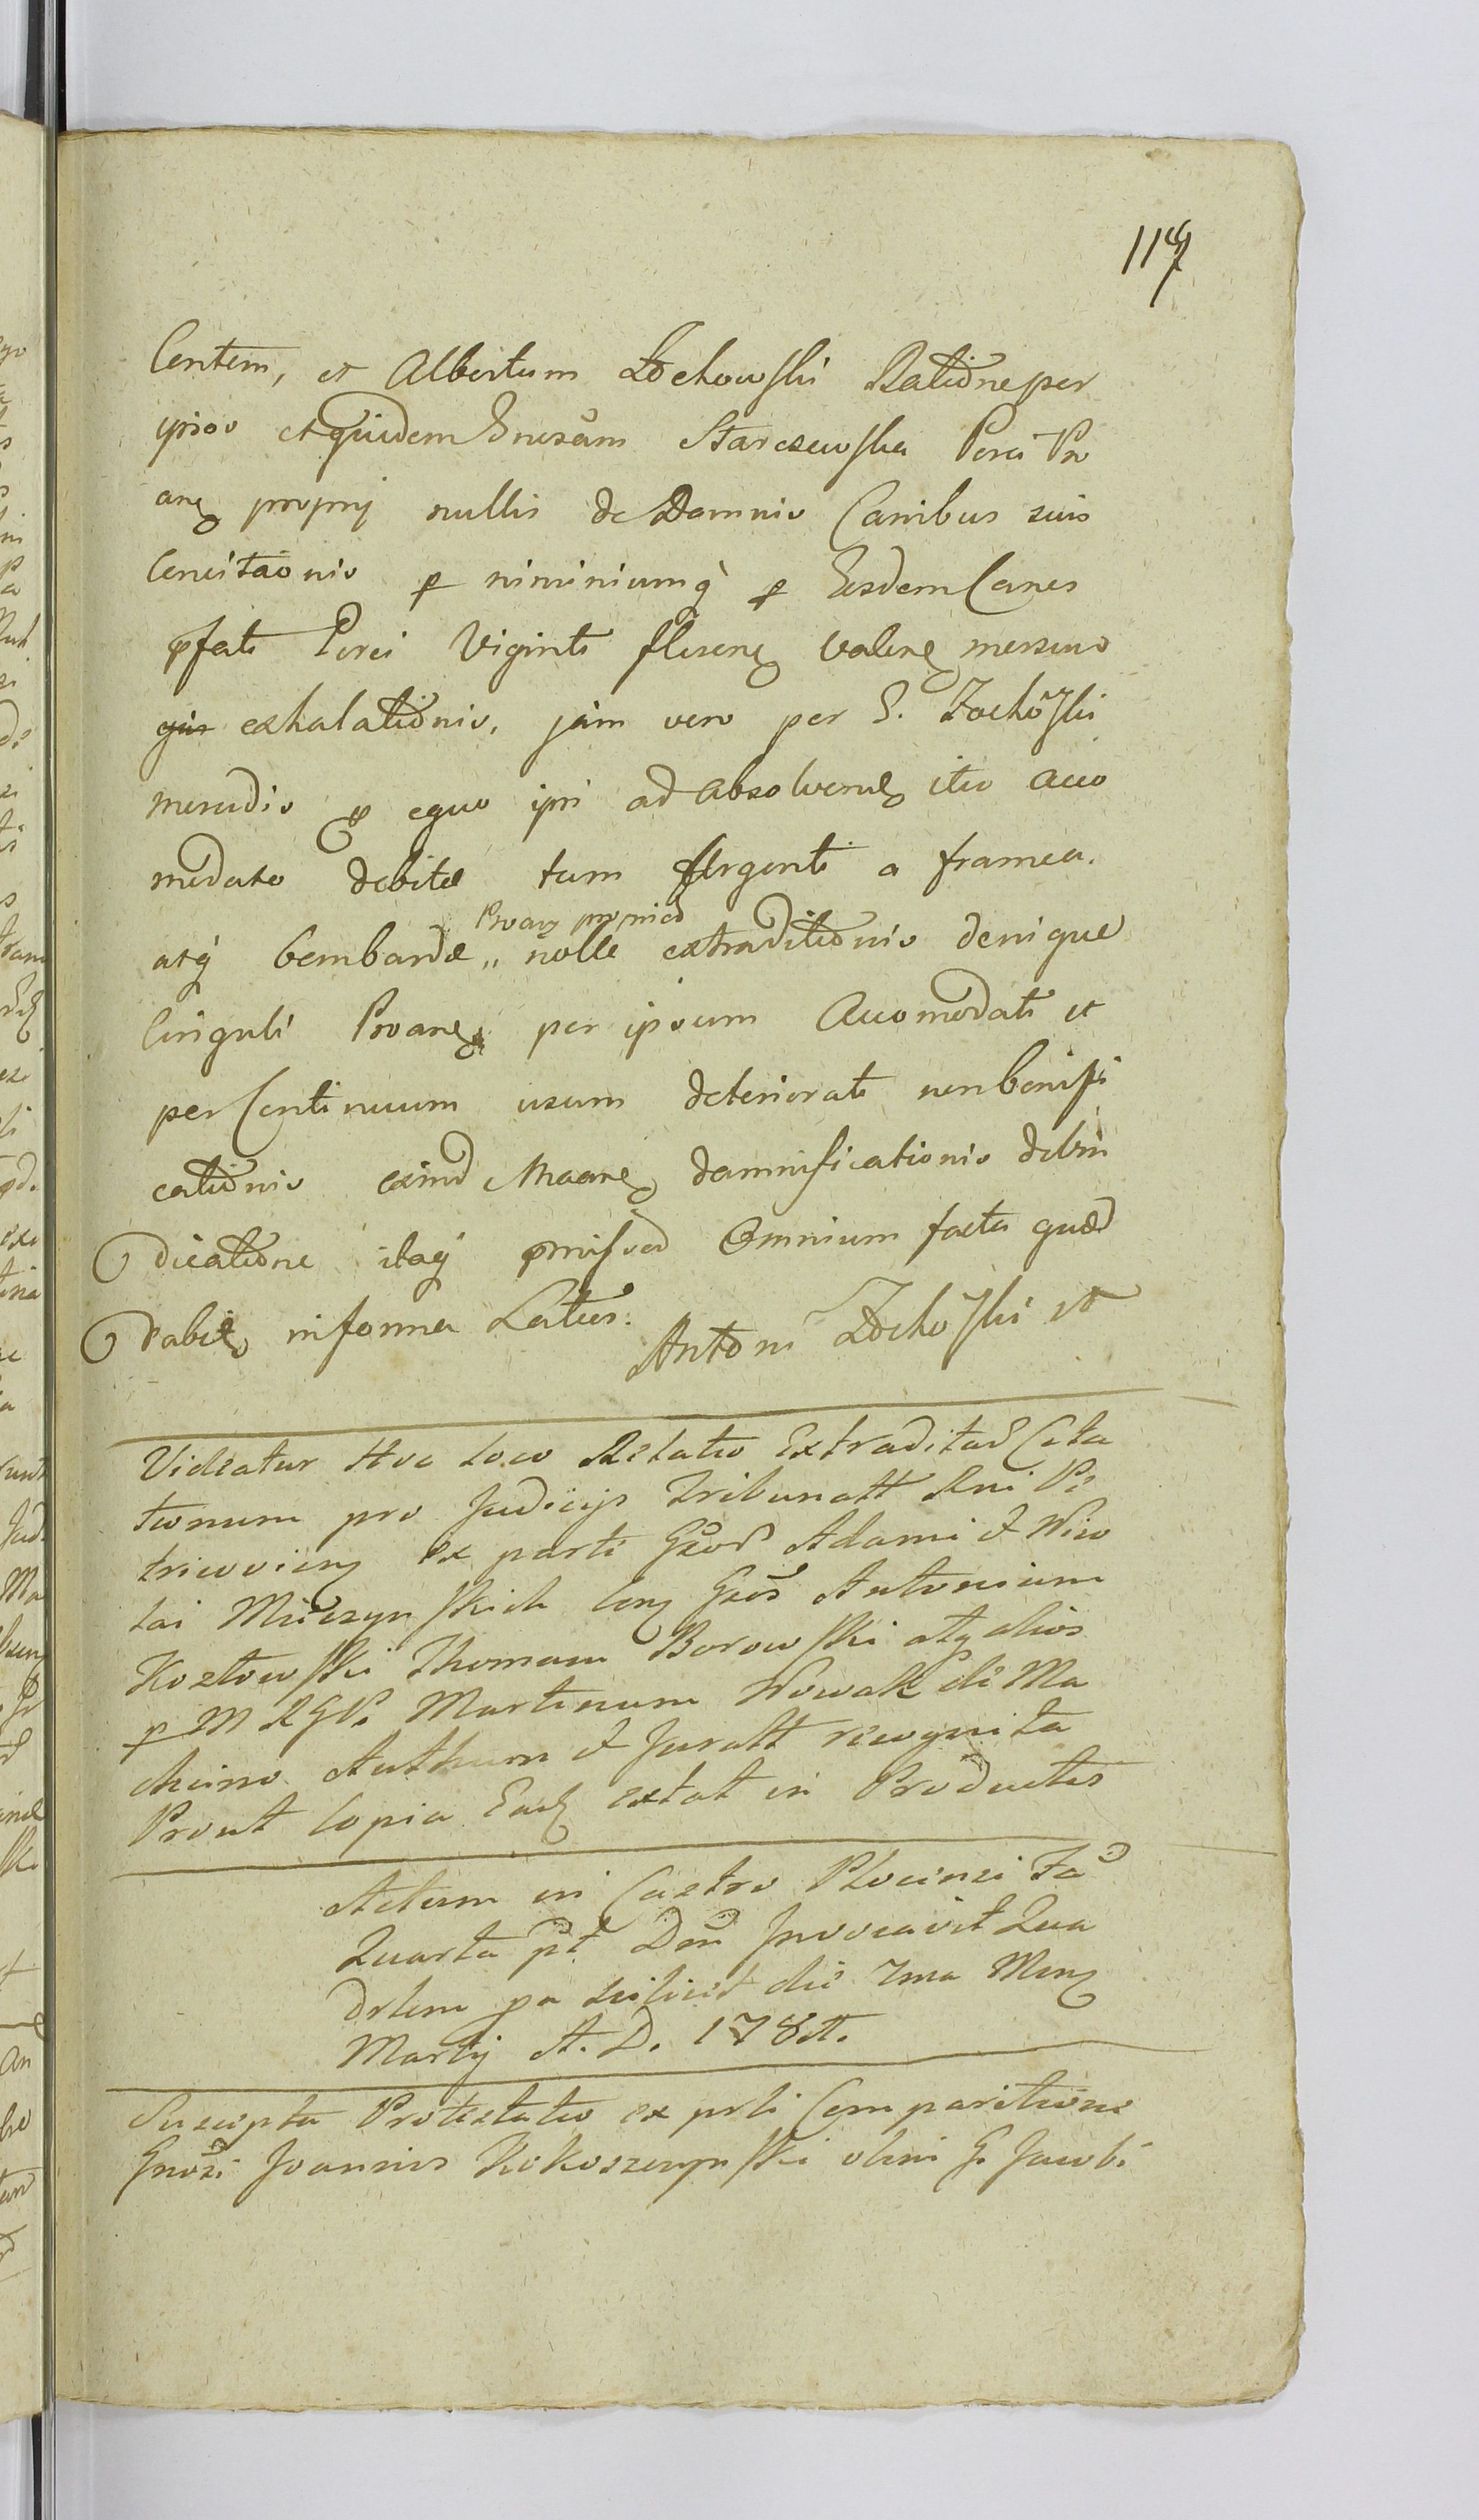 117
Centem, et Albertum Zochowski Ratiõne per
ipsos et quidem Gnosam Starczewska Porci Pro
anẹ proprij nullis de Damnis Canibus suis
Concitaõnis p niminiumq̀ p Eosdem Canes
pfati Porci Viginti flurenẹ valenẹ
exhalatiõnis, jam vero per G. Zochoski
p equo ipsi ad absolvend itio acco
modato debitæ tum Argenti a framea
Proanẹ
atq̀ bombardæ „ nolle extraditiõnis denique
Cinguli Proanẹ per ipsum Accomodati et
per Continuum usum deteriorati non bonifi
catiõnis exind Maanẹ damnificationis
dicatiõne itaq̀ pmissor Omnium facta quæd
rabit in forma Latius. Antoni Zochoski et
Videatur Hoc loco Relatio Extraditar Cita
tionum pro Judicijs Tribunatt Rni Pe
tricovien ex parti Gsor Adami & Nico
lai Miiczynskich con Gsos Antonium
Kozłowski Thomam Borowski atq alios
p M R G P. Martinum Nowak de Ma
chcino Authum & Juratt recognita
Prout copia Ear extat in Productis
Actum in Castro Plocensi Fa
Quarta pt Dm Invocavit Qua
dslem pa scilicet die 1ma Mens
Martij A. D. 178
Suscepta Protestatio ex prti Comparitione
Gnosi Joannis Kokoszczynski olim G. Jacobi